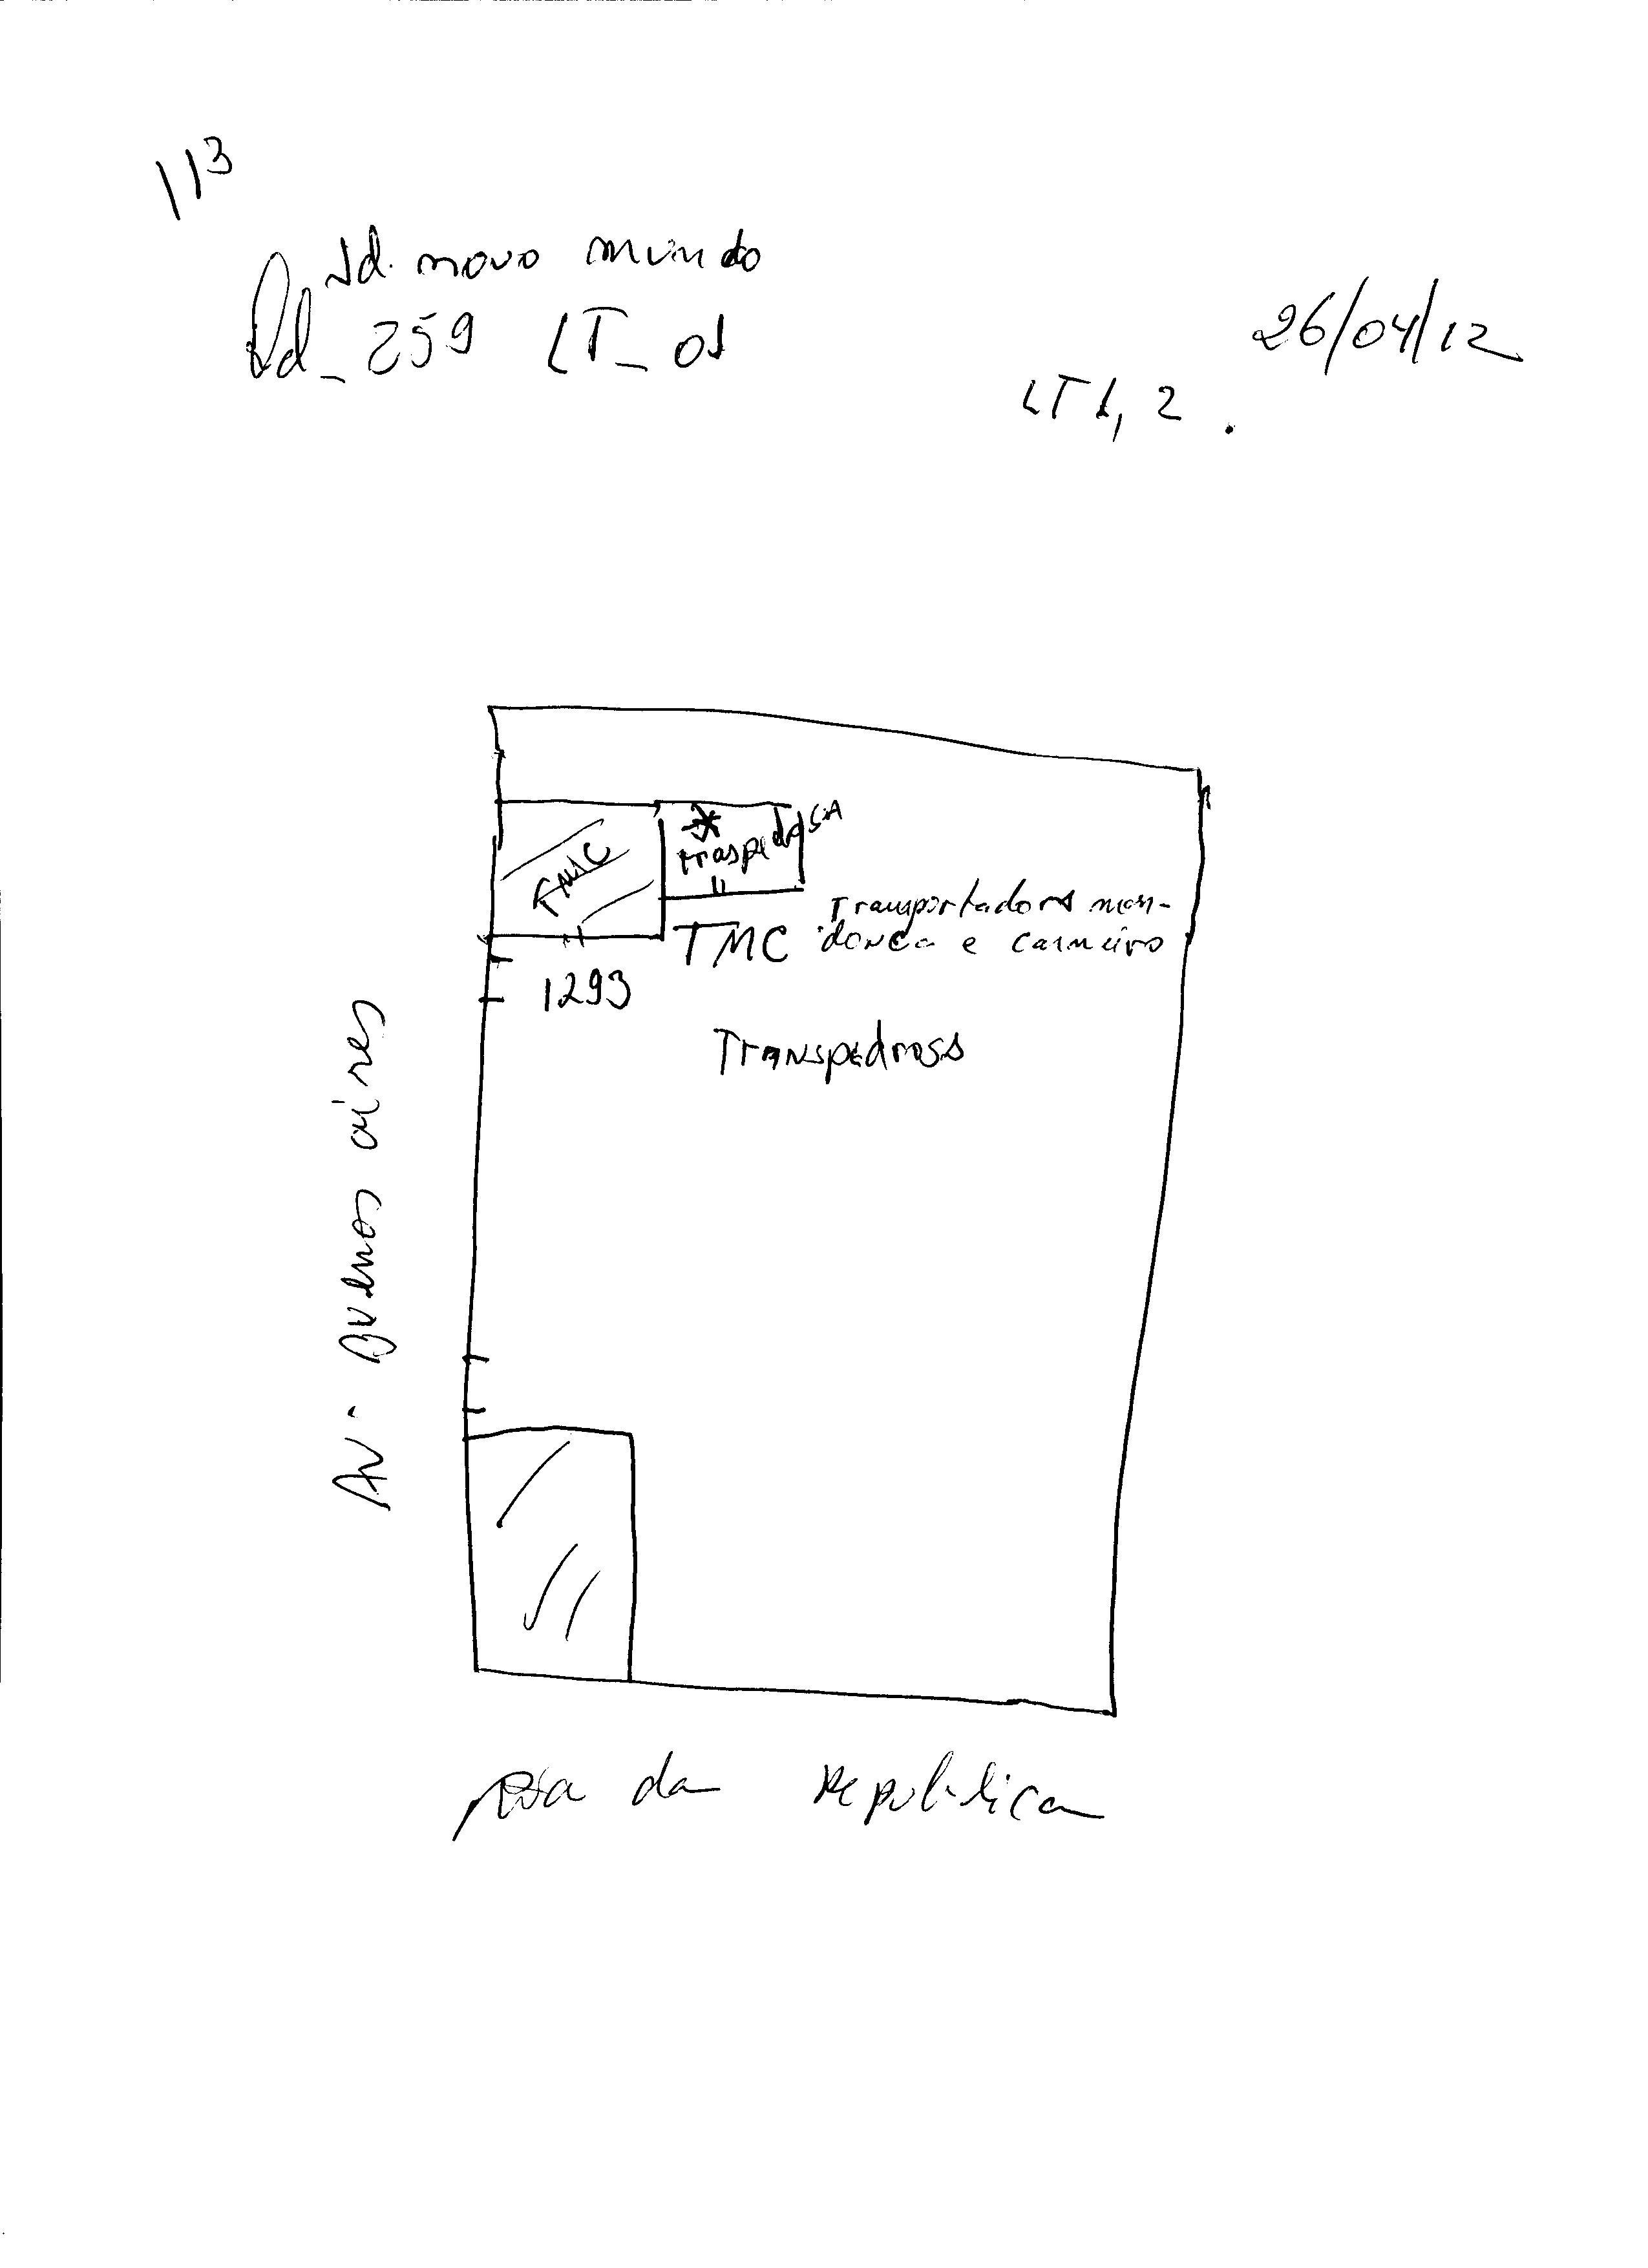 113
Jd. novo mundo
Qd_ 259 LT_ 01
26/04/12
LT 1, 2 .
TMC
traspedosa
Transportadora men-
TMC donca e carneiro
1293
Transpedrosa
Av. Buenos aires
Rua da republica